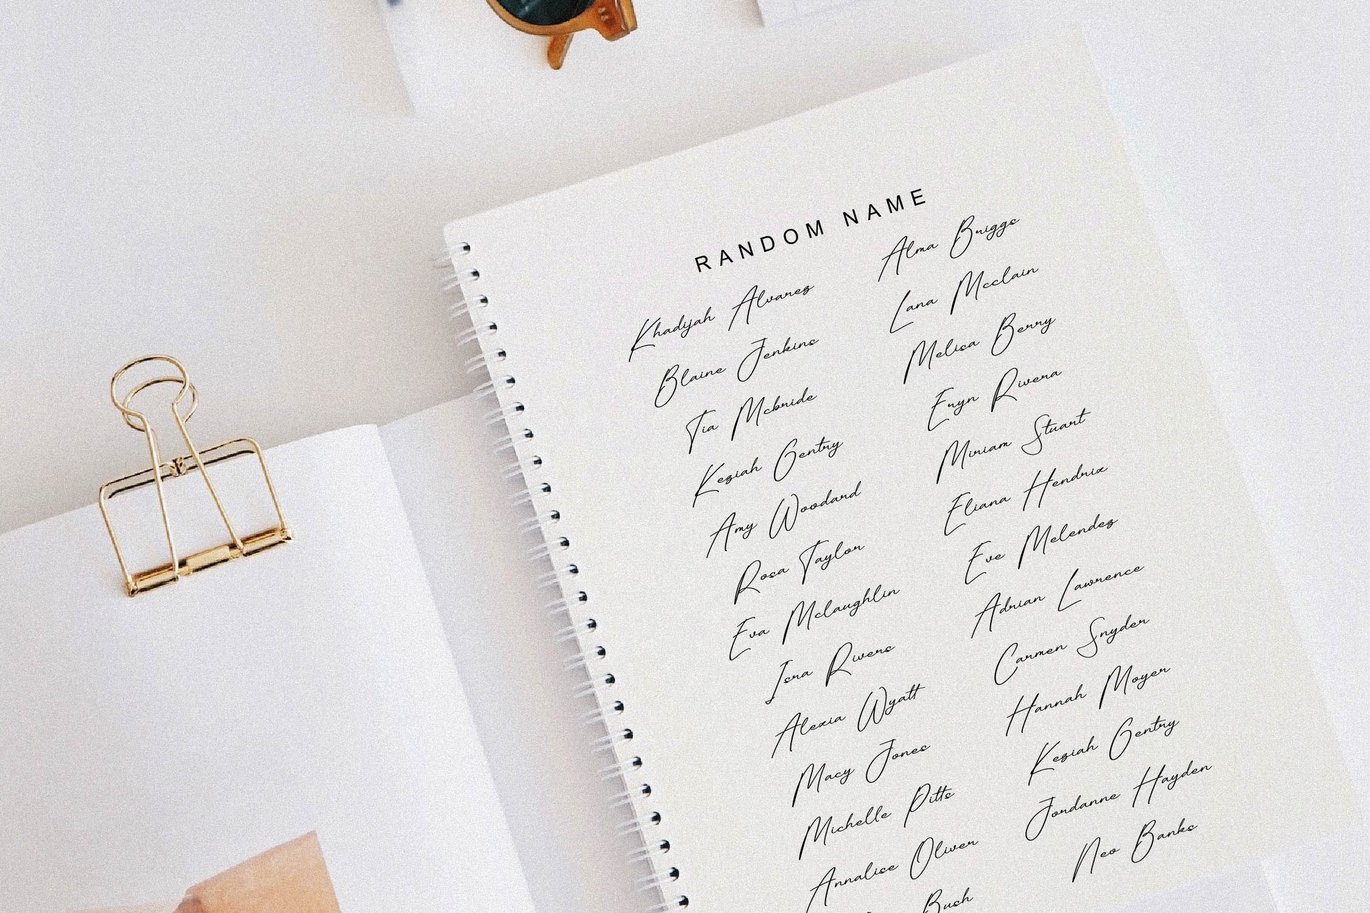 RANDOM NAME
Khadijah Alvarez
Blaine Jenkins
Tia Mcbride
Keziah Gentry
Amy Woodard
Rosa Taylor
Eva Mclaughlin
Isra Rivers
Alexia Wyatt
Macy Jones
Michelle Pitts
Annalise Oliver
Bush
Alma Briggs
Lana Mcclain
Melisa Berry
Eryn Rivera
Miriam Stuart
Eliana Hendrix
Eve Melendez
Adrian Lawrence
Carmen Snyder
Hannah Moyer
Keziah Gentry
Jordanne Hayden
Neo Banks